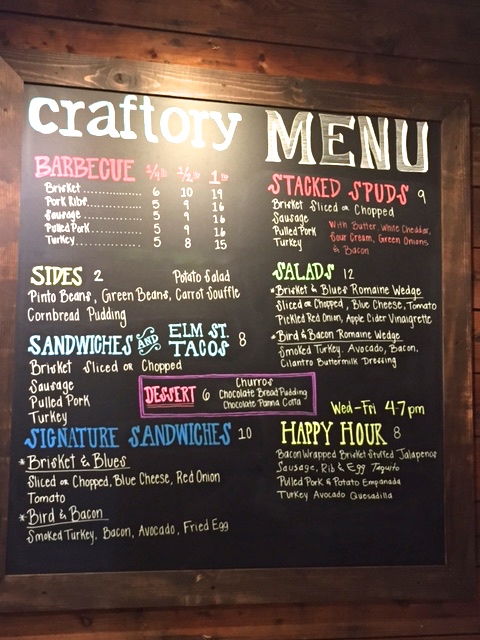 craftory MENU
BARBECUE 1/4 lb 1/2 lb 1 lb
Brisket 6 10 19
Pork Ribs 5 9 16
Sausage 5 9 16
Pulled Pork 5 9 16
Turkey 5 8 15
SIDES 2 Potato Salad
Pinto Beans, Green Beans, Carrot Souffle
Cornbread Pudding
SANDWICHES AND ELM ST. TACOS 8
Brisket Sliced or Chopped
Sausage
Pulled Pork
Turkey
DESSERT 6
Churros
Chocolate Bread Pudding
Chocolate Panna Cotta
SIGNATURE SANDWICHES 10
*Brisket & Blues
Sliced or Chopped, Blue Cheese, Red Onion
Tomato
*Bird & Bacon
Smoked Turkey, Bacon, Avocado, Fried Egg
STACKED SPUDS 9
Brisket Sliced or Chopped
Sausage
Pulled Pork
Turkey
With Butter, White Cheddar,
Sour Cream, Green Onions
& Bacon
SALADS 12
*Brisket & Blues Romaine Wedge
Sliced or Chopped, Blue Cheese, Tomato
Pickled Red Onion, Apple Cider Vinaigrette
*Bird & Bacon Romaine Wedge
Smoked Turkey, Avocado, Bacon,
Cilantro Buttermilk Dressing
Wed-Fri 4-7pm
HAPPY HOUR 8
Bacon Wrapped Brisket Stuffed Jalapenos
Sausage, Rib & Egg Taquito
Pulled Pork & Potato Empanada
Turkey Avocado Quesadilla